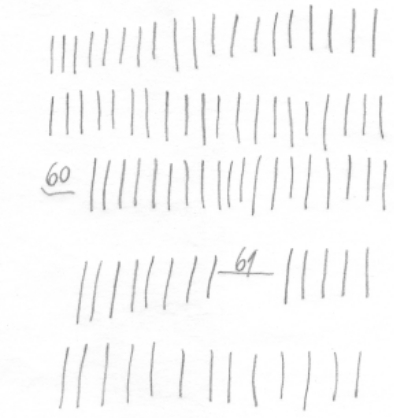 60
61